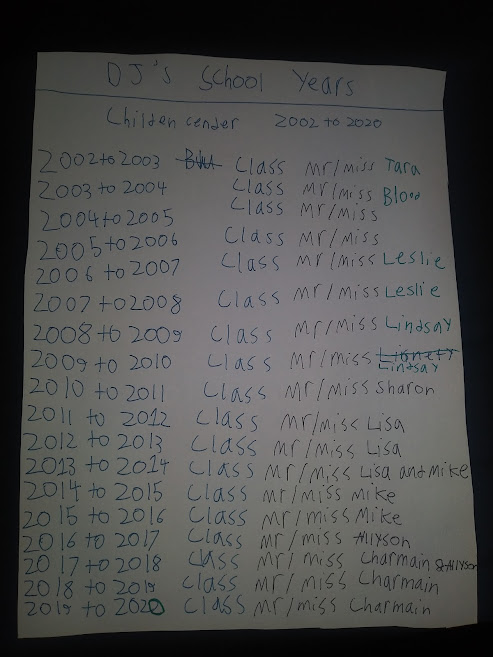 DJ's School Years
Childen cender 2002 to 2020
2002 to 2003 Class Mr/miss Tara
2003 to 2004 Class Mr/miss Blood
2004 to 2005 Class Mr/miss
2005 to 2006 Class Mr/miss
2006 to 2007 Class Mr/miss Leslie
2007 to 2008 Class Mr/miss Leslie
2008 to 2009 Class Mr/miss Lindsay
2009 to 2010 Class Mr/miss Lindsay
2010 to 2011 Class Mr/miss Sharon
2011 to 2012 Class Mr/miss Lisa
2012 to 2013 Class Mr/miss Lisa
2013 to 2014 Class Mr/miss Lisa and Mike
2014 to 2015 Class Mr/miss Mike
2015 to 2016 Class Mr/miss Mike
2016 to 2017 Class Mr/miss Allyson
2017 to 2018 Class Mr/miss Charmain & Allyson
2018 to 2019 Class Mr/miss Charmain
2019 to 2020 Class Mr/miss Charmain